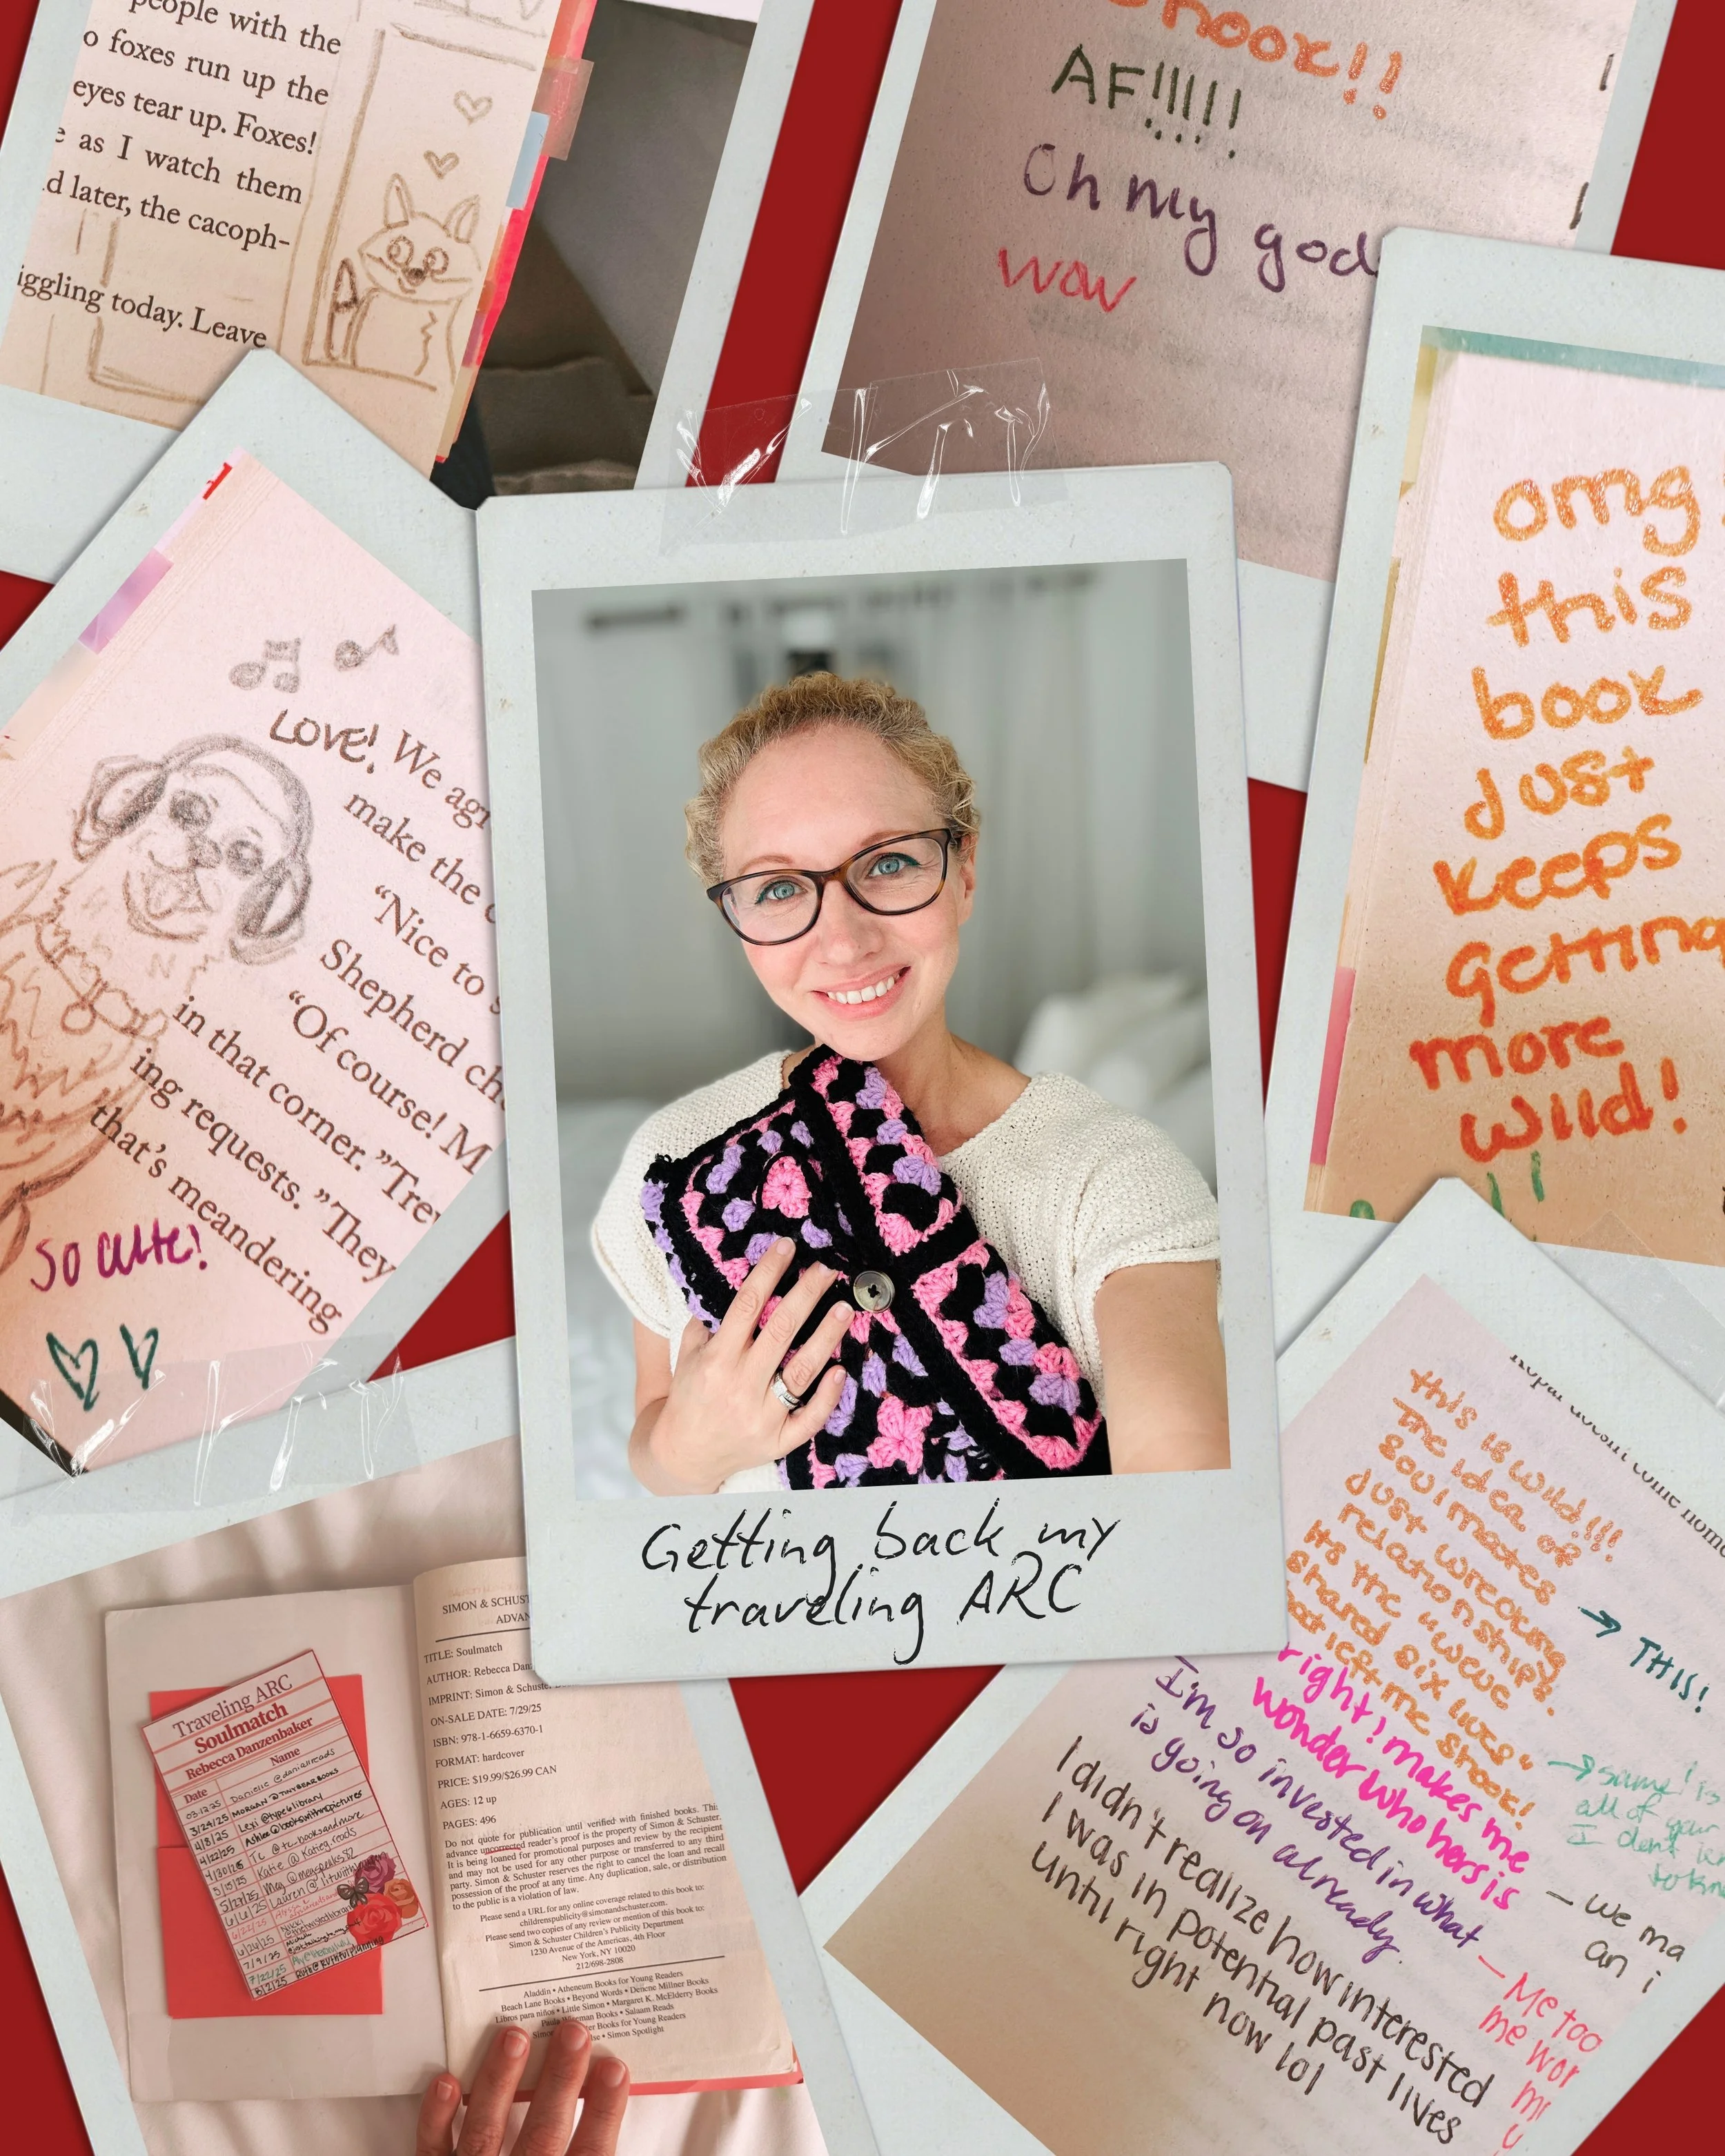 people with the
o foxes run up the
eyes tear up. Foxes!
e as I watch them
d later, the cacoph-
iggling today. Leave
shook!!
AF!!!!!
Oh my god
wow
omg
this
book
just
keeps
getting
more
wild!
LOVE! We agr
make the
"Nice to
Shepherd ch
"Of course! M
in that corner." Trev
ing requests. "They
that's meandering
so cute!
Getting back my
traveling ARC
this is wild!!!
The idea of
soulmates
just wrecking
relationships?
Its the "weve
shared six lives"
that left me shook!
→ THIS!
right? makes me
wonder who hers is
→ same! is
all of your
I'm so invested in what
is going on already.
I didn't realize how interested
I was in potential past lives
until right now lol
– we ma
an i
– Me too
me wor
Traveling ARC
Soulmatch
Rebecca Danzenbaker
Date Name
03.12.25 Danielle @daniallreads
3/24/25 MORGAN @TINYBEARBOOKS
4/8/25 Lexi @type6library
4/22/25 Ashlee @bookswithnopictures
4/30/25 Tc @tc_booksandmore
5/15/25 Katie @katieg.reads
5/27/25 Meg @megspeaks82
6/6/25 Lauren @
6/26/25 Nikki
7/9/25
7/22/25
8/2/25
SIMON & SCHUST
ADVAN
TITLE: Soulmatch
AUTHOR: Rebecca Dan
IMPRINT: Simon & Schuste
ON-SALE DATE: 7/29/25
ISBN: 978-1-6659-6370-1
FORMAT: hardcover
PRICE: $19.99/$26.99 CAN
AGES: 12 up
PAGES: 496
Do not quote for publication until verified with finished books. This
advance uncorrected reader's proof is the property of Simon & Schuster.
It is being loaned for promotional purposes and review by the recipient
and may not be used for any other purpose or transferred to any third
party. Simon & Schuster reserves the right to cancel the loan and recall
possession of the proof at any time. Any duplication, sale, or distribution
to the public is a violation of law.
Please send a URL for any online coverage related to this book to:
childrenspublicity@simonandschuster.com.
Please send two copies of any review or mention of this book to:
Simon & Schuster Children's Publicity Department
1230 Avenue of the Americas, 4th Floor
New York, NY 10020
212/698-2808
Aladdin • Atheneum Books for Young Readers
Beach Lane Books • Beyond Words • Denene Millner Books
Libros para niños • Little Simon • Margaret K. McElderry Books
Paula Wiseman Books • Salaam Reads
Simon er Books for Young Readers
lse • Simon Spotlight